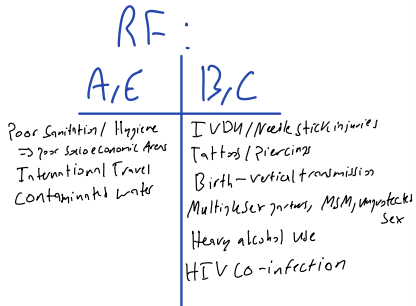 RF:
A,E
B,C
Poor Sanitation/ Hygiene
=> poor Socioeconomic Areas
International Travel
Contaminated water
IVDU/Needle stick injuries
Tattoos/Piercings
Birth - vertical transmission
Multiple sex partners, MSM, unprotected
Sex
Heavy alcohol use
HIV Co-infection